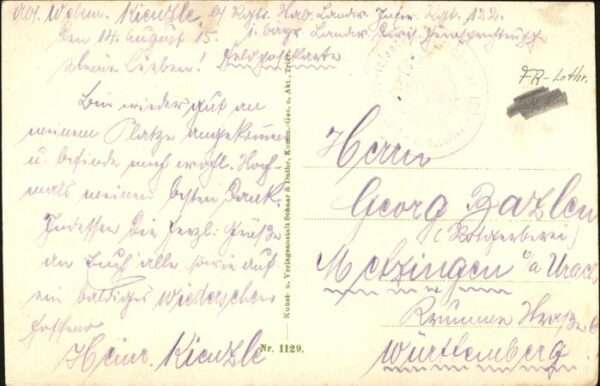 Abs. Wehrm. Kienzle, b/ Regts. Stab. Landw. Infr. Rgt. 122.
Den 14. August 15. 1. bayr. Landw.
Meine Lieben! Feldpostkarte
Bin wieder gut an
meinem Platze angekommen
u. befinde mich wohl. Noch-
mals meinen besten Dank.
Indessen die herzl. Grüße
an Euch alle sowie auf
ein baldiges Wiedersehen
hoffend
Heinr. Kienzle
Kunst- u. Verlagsanstalt Schaar & Dathe, Komm.-Ges. a. Akt., Trier.
Nr. 1129.
FR-Lothr.
Herrn
Georg Bazlen
(Rotgerberei)
Metzingen a/ Urach
Württemberg